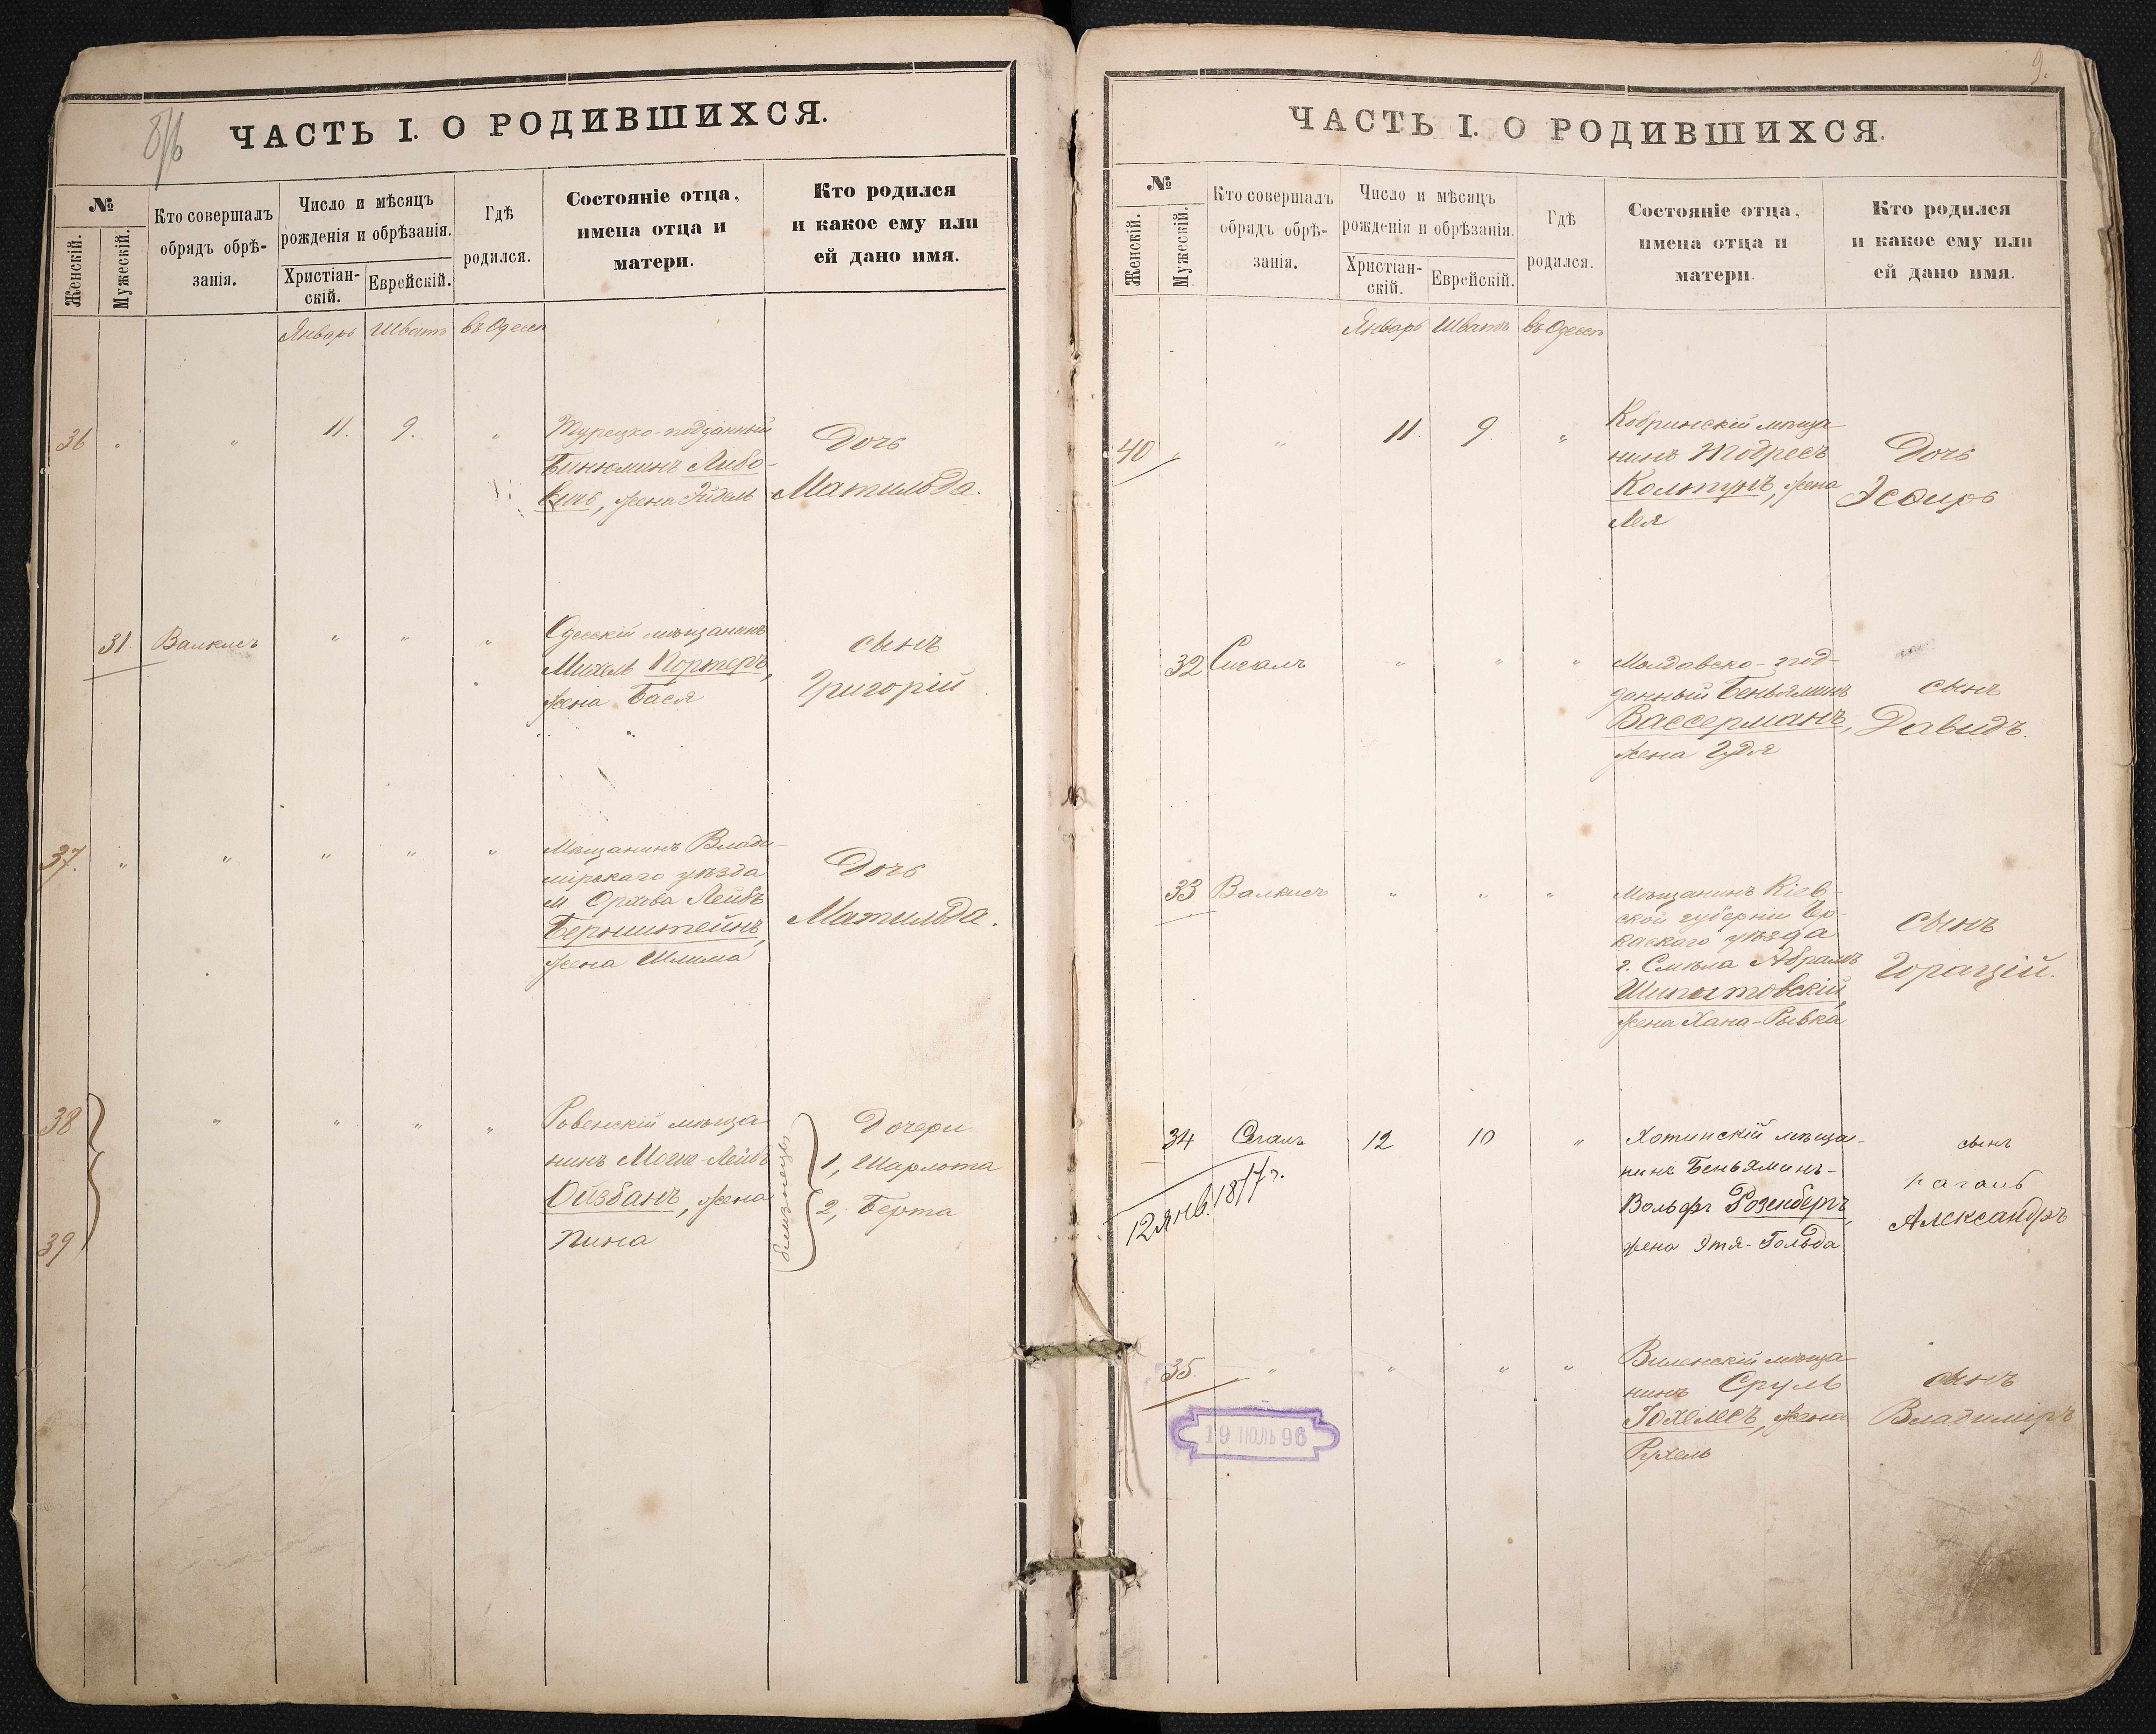 8/б
ЧАСТЬ I. О РОДИВШИХСЯ.
№
Женскій.
Мужескій.
Кто совершалъ
обрядъ обрѣ-
занія.
Число и мѣсяцъ
рожденія и обрѣзанія.
Христіан-
скій.
Еврейскій.
Гдѣ
родился.
Состояніе отца,
имена отца и
матери.
Кто родился
и какое ему или
ей дано имя.
Январь Шватъ въ Одессѣ
36 " " 11. 9. "
Турецко-подданный
Бинюминъ Либо-
вичъ, жена Эйдель
Дочь
Матильда.
31. Валкисъ " " "
Одесскій мѣщанинъ
Михель Портеръ,
жена Бася
сынъ
Григорій
37. " " " " "
Мѣщанинъ Влади-
мірскаго уѣзда
м. Орхова Лейбъ
Бернштейнъ,
жена Шлима
Дочь
Матильда.
38
39
" " " "
Ровенскій мѣща-
нинъ Мошке-Лейбъ
Ойзбанъ, жена
Пина
близнецы
Дочери
1, Шарлота
2, Берта
9.
ЧАСТЬ I. О РОДИВШИХСЯ.
№
Женскій.
Мужескій.
Кто совершалъ
обрядъ обрѣ-
занія.
Число и мѣсяцъ
рожденія и обрѣзанія.
Христіан-
скій.
Еврейскій.
Гдѣ
родился.
Состояніе отца,
имена отца и
матери.
Кто родился
и какое ему или
ей дано имя.
Январь Шватъ въ Одессѣ
40 " " 11. 9. "
Кобринскій мѣща-
нинъ Тодресъ
Колтунъ, жена
Лея
Дочь
Эсѳирь
32 Сигалъ " " "
Молдавско-под-
данный Беньяминъ
Вассерманъ,
жена Гудя
сынъ
Давидъ.
33 Валкисъ " " "
Мѣщанинъ Кіев-
ской губерніи Чер-
каскаго уѣзда
г. Смѣла Абрамъ
Шипитовскій,
жена Хана-Рывка
сынъ
Горацій.
34 Сигалъ 12 10 "
12 янв. 1877 г.
Хотинскій мѣща-
нинъ Беньяминъ-
Вольфъ Розенбергъ,
жена Этя-Гольда
сынъ
Александръ
35. " " " "
19 ІЮЛЬ 96
Виленскій мѣща-
нинъ Сруль
Іохелесъ, жена
Рухель
сынъ
Владиміръ